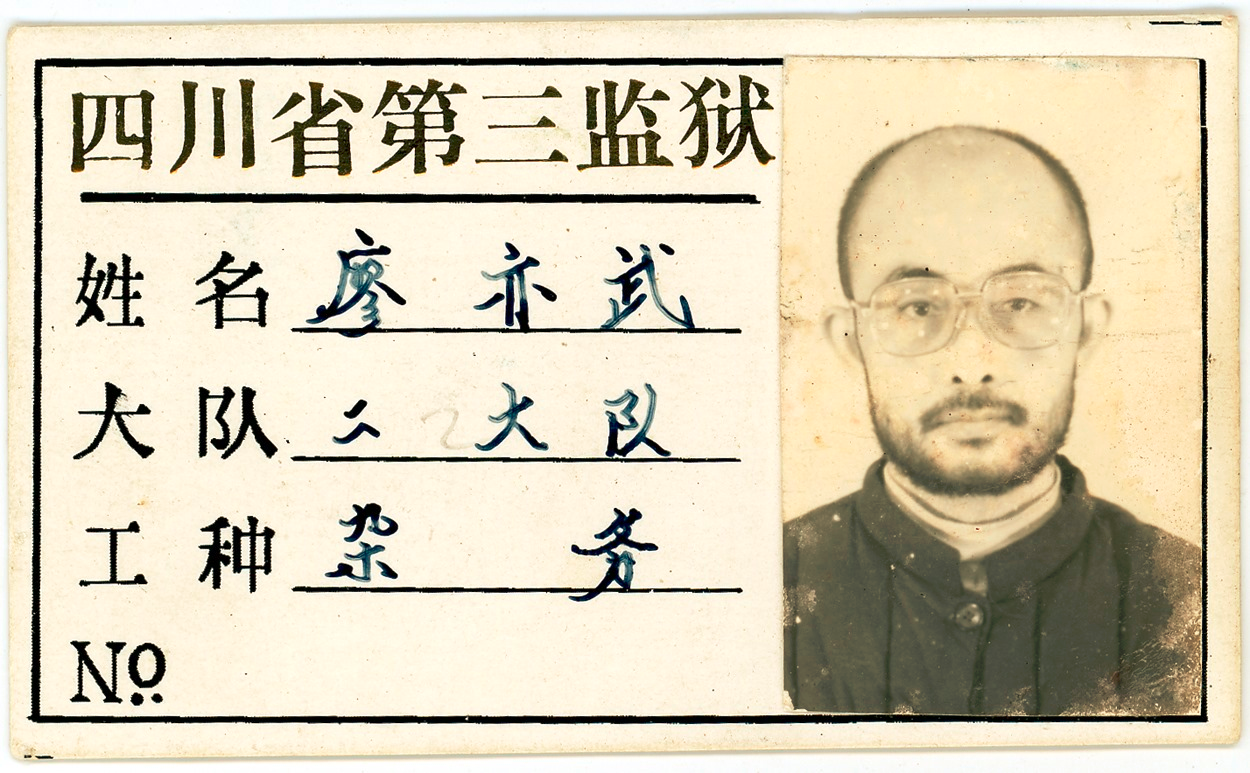 四川省第三监狱
姓名 廖亦武
大队 二大队
工种 杂务
№